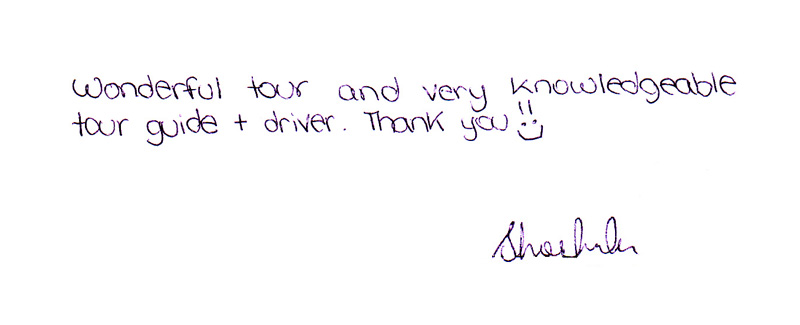 Wonderful tour and very knowledgeable
tour guide + driver. Thank you!!